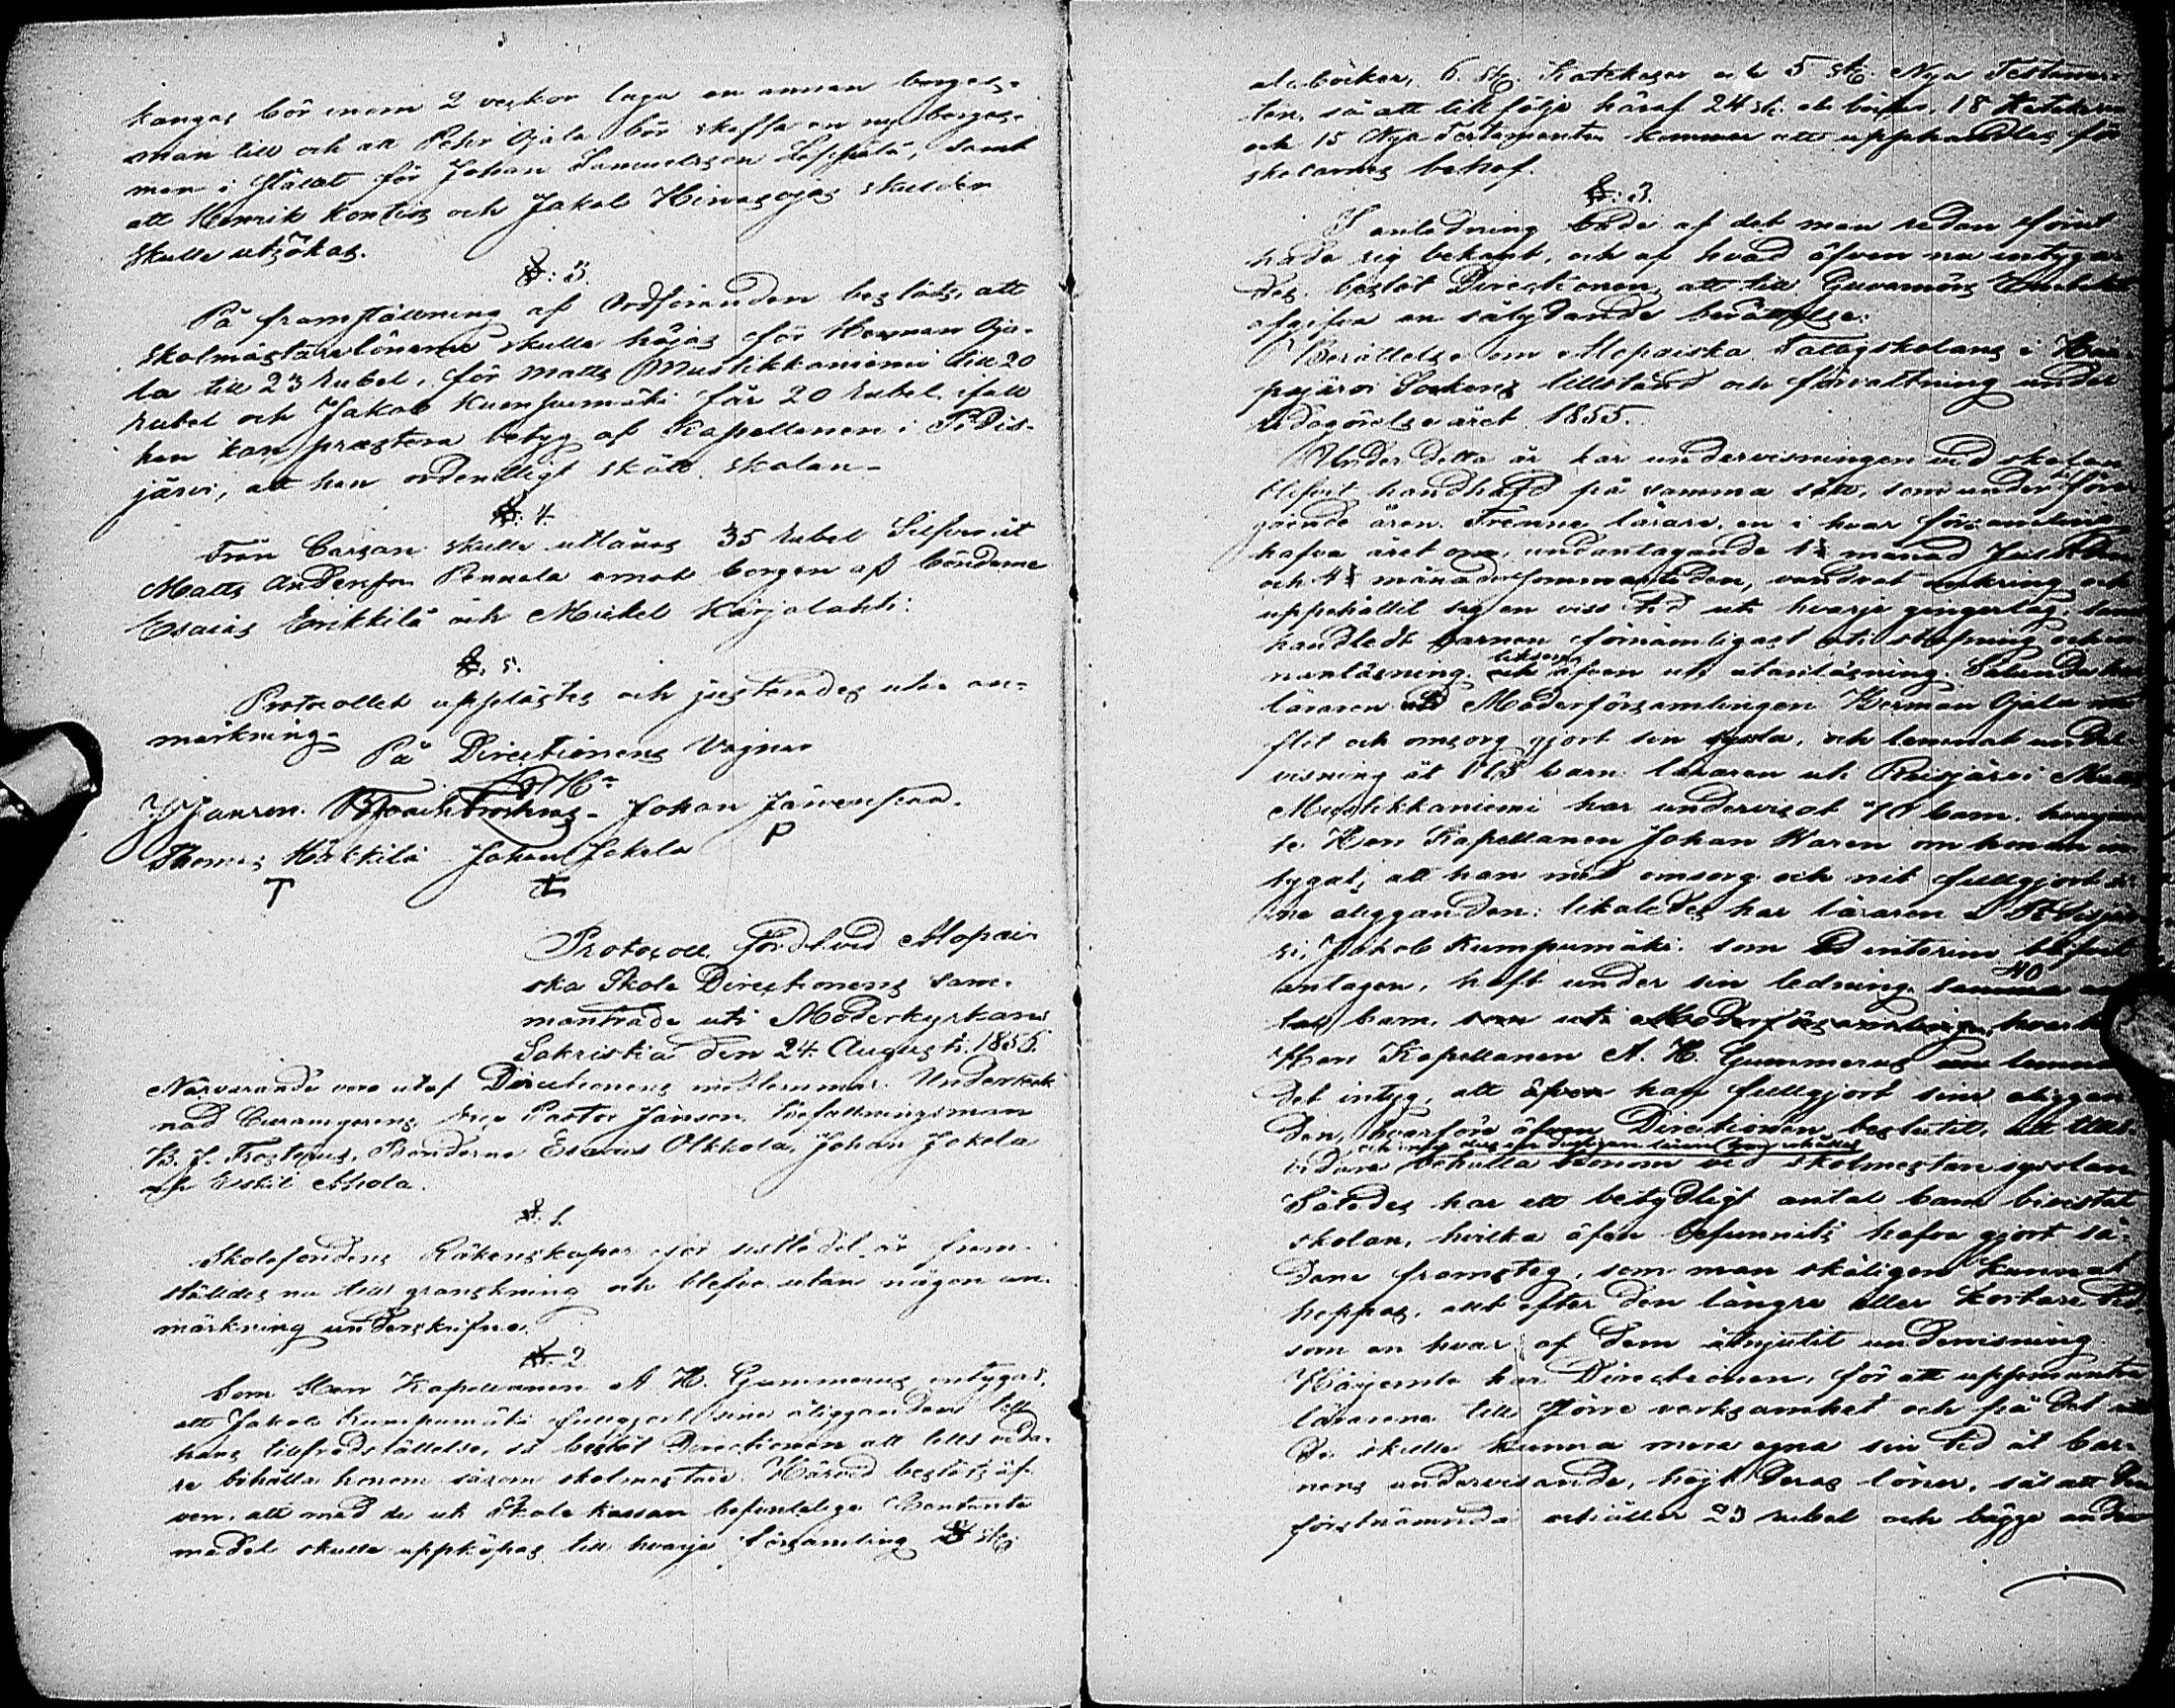 kangas bör inom 2 veckor laga en annan borges-
man till och att Pehr Ojala bör skaffa en ny borges-
man i stället för Johan Samuelsson Leppälä, samt
att Henrik Kontios och Jakob Hirvasojas skulder
skulle utsökas.
§: 3.
På framställning af Ordföranden beslöts, att
skolmästarelönerne skulle höjas för Herman Oja-
la till 23 Rubel, för Matts Mustikkaniemi till 20
Rubel och Jakob Kumpumäki får 20 Rubel, ifall
han kan prestera betyg af Kapellanen i Pidis-
järvi, att han ordentligt skött skolan-
§: 4.
Från Cassan skulle utlånas 35 Rubel Silfver åt
Matts Andersson Pennala emot borgen af bönderne
Esaias Erikkilä och Mickel Karjalahti.
§. 5.
Protocollet upplästes och justerades utan an-
märkning-
På Directionens Vägnar
J Janson. B J Frosterus- Johan Jäivenpää.
P
Thomas Härkkilä Johan Jokela
T
Protocoll, fördt vid Alopæi-
ska Skole Directionens sam-
manträde uti Moderkyrkans
Sakristia den 24 Augusti 1855.
Närvarande voro utaf Directionens medlemmar: Underteck-
nad Curamgerens, Herr Pastor Janson, Befallningsman
B. J. Frosterus, Bönderne Esaias Olkkola, Johan Jokela
och Eskil Ahola.
§. 1.
Skolefondens Räkenskaper för sistledet år fram-
ställdes nu till granskning och blefvo utan någon an-
märkning underskrifne.
§. 2.
Som Herr Kapellanen A. H. Gummerus intygat,
att Jakob Kumpumäki fullgjort sine åligganden till
hans tillfredsställelse, så beslöt Directionen att tills vida-
re bibehålla honom såsom skolmästare. Härvid beslöts äf-
ven, att med de uti Skole kassan befintelige Contanta
medel skulle uppköpas till hvarje församling 8 st.
abc böcker, 6. st. Katekeser och 5 st. Nya Testamen-
ten, så att till följe häraf 24 st. abc böcker, 18 Katekeser
och 15 Nya Testamenter kommer att upphandlas för
skolarnes behof.
§: 3.
I anledning både af det man redan förut
hade sig bekant, och af hvad äfven nu intyga-
des, beslöt Directionen, att till Guvernörs Embetet
afgifva en sålydande berättelse:
Berättelse om Alopæiska Fattigskolans i Haa-
pajärvi Socken tillstånd och förvaltning under
redogörelseåret 1855.
Under detta år har undervisningen vid skolan
blifvit handhafd på samma sätt, som under före-
gående åren. Trenne lärare, en i hvar församling
hafva året om, undantagande 1½ månad Jultiden
och 4½ månader sommartiden, vandrat omkring och
uppehållit sig en viss tid uti hvarje gingerlag, samt
handledt barnen förnämligast uti stafning och in-
nanläsning, likasom äfven uti utanläsning. Sålunda har
läraren i Moderförsamlingen Herman Ojala med
flit och omsorg gjort sin syssla, och lemnat under-
visning åt 113 barn. läraren uti Reisjärvi Matts
Mustikkaniemi har undervisat 70 barn, hvarjem-
te Herr Kapellanen Johan Waren om honom in-
tygat, att han med omsorg och nit fullgjort si-
ne åligganden: likaledes har läraren i Pidisjär-
vi, Jakob Kumpumäki, som ad interim blifvit
antagen, haft under sin ledning 40
barn,
Herr Kapellanen A. H. Gummerus
det intyg, att han fullgjort sine åliggan-
den, hvarföre Directionen beslutit, att tills
vidare bibehålla honom vid skolmästare sysslan
Således har ett betydligt antal barn bivistat
skolan, hvilka äfven befunnits hafva gjort så-
dane framsteg, som man skäligen kunnat
hoppas, allt efter den längre eller kortare tid
som en hvar af dem åtnjutit undervisning.
Härjemte har Directionen, för att uppmuntra
lärarene till större verksamhet och på det att
de skulle kunna mera egna sin tid åt bar-
nens undervisande, höjt deras löner, så att den
förstnämnda erhåller 23 rubel och bägge andre